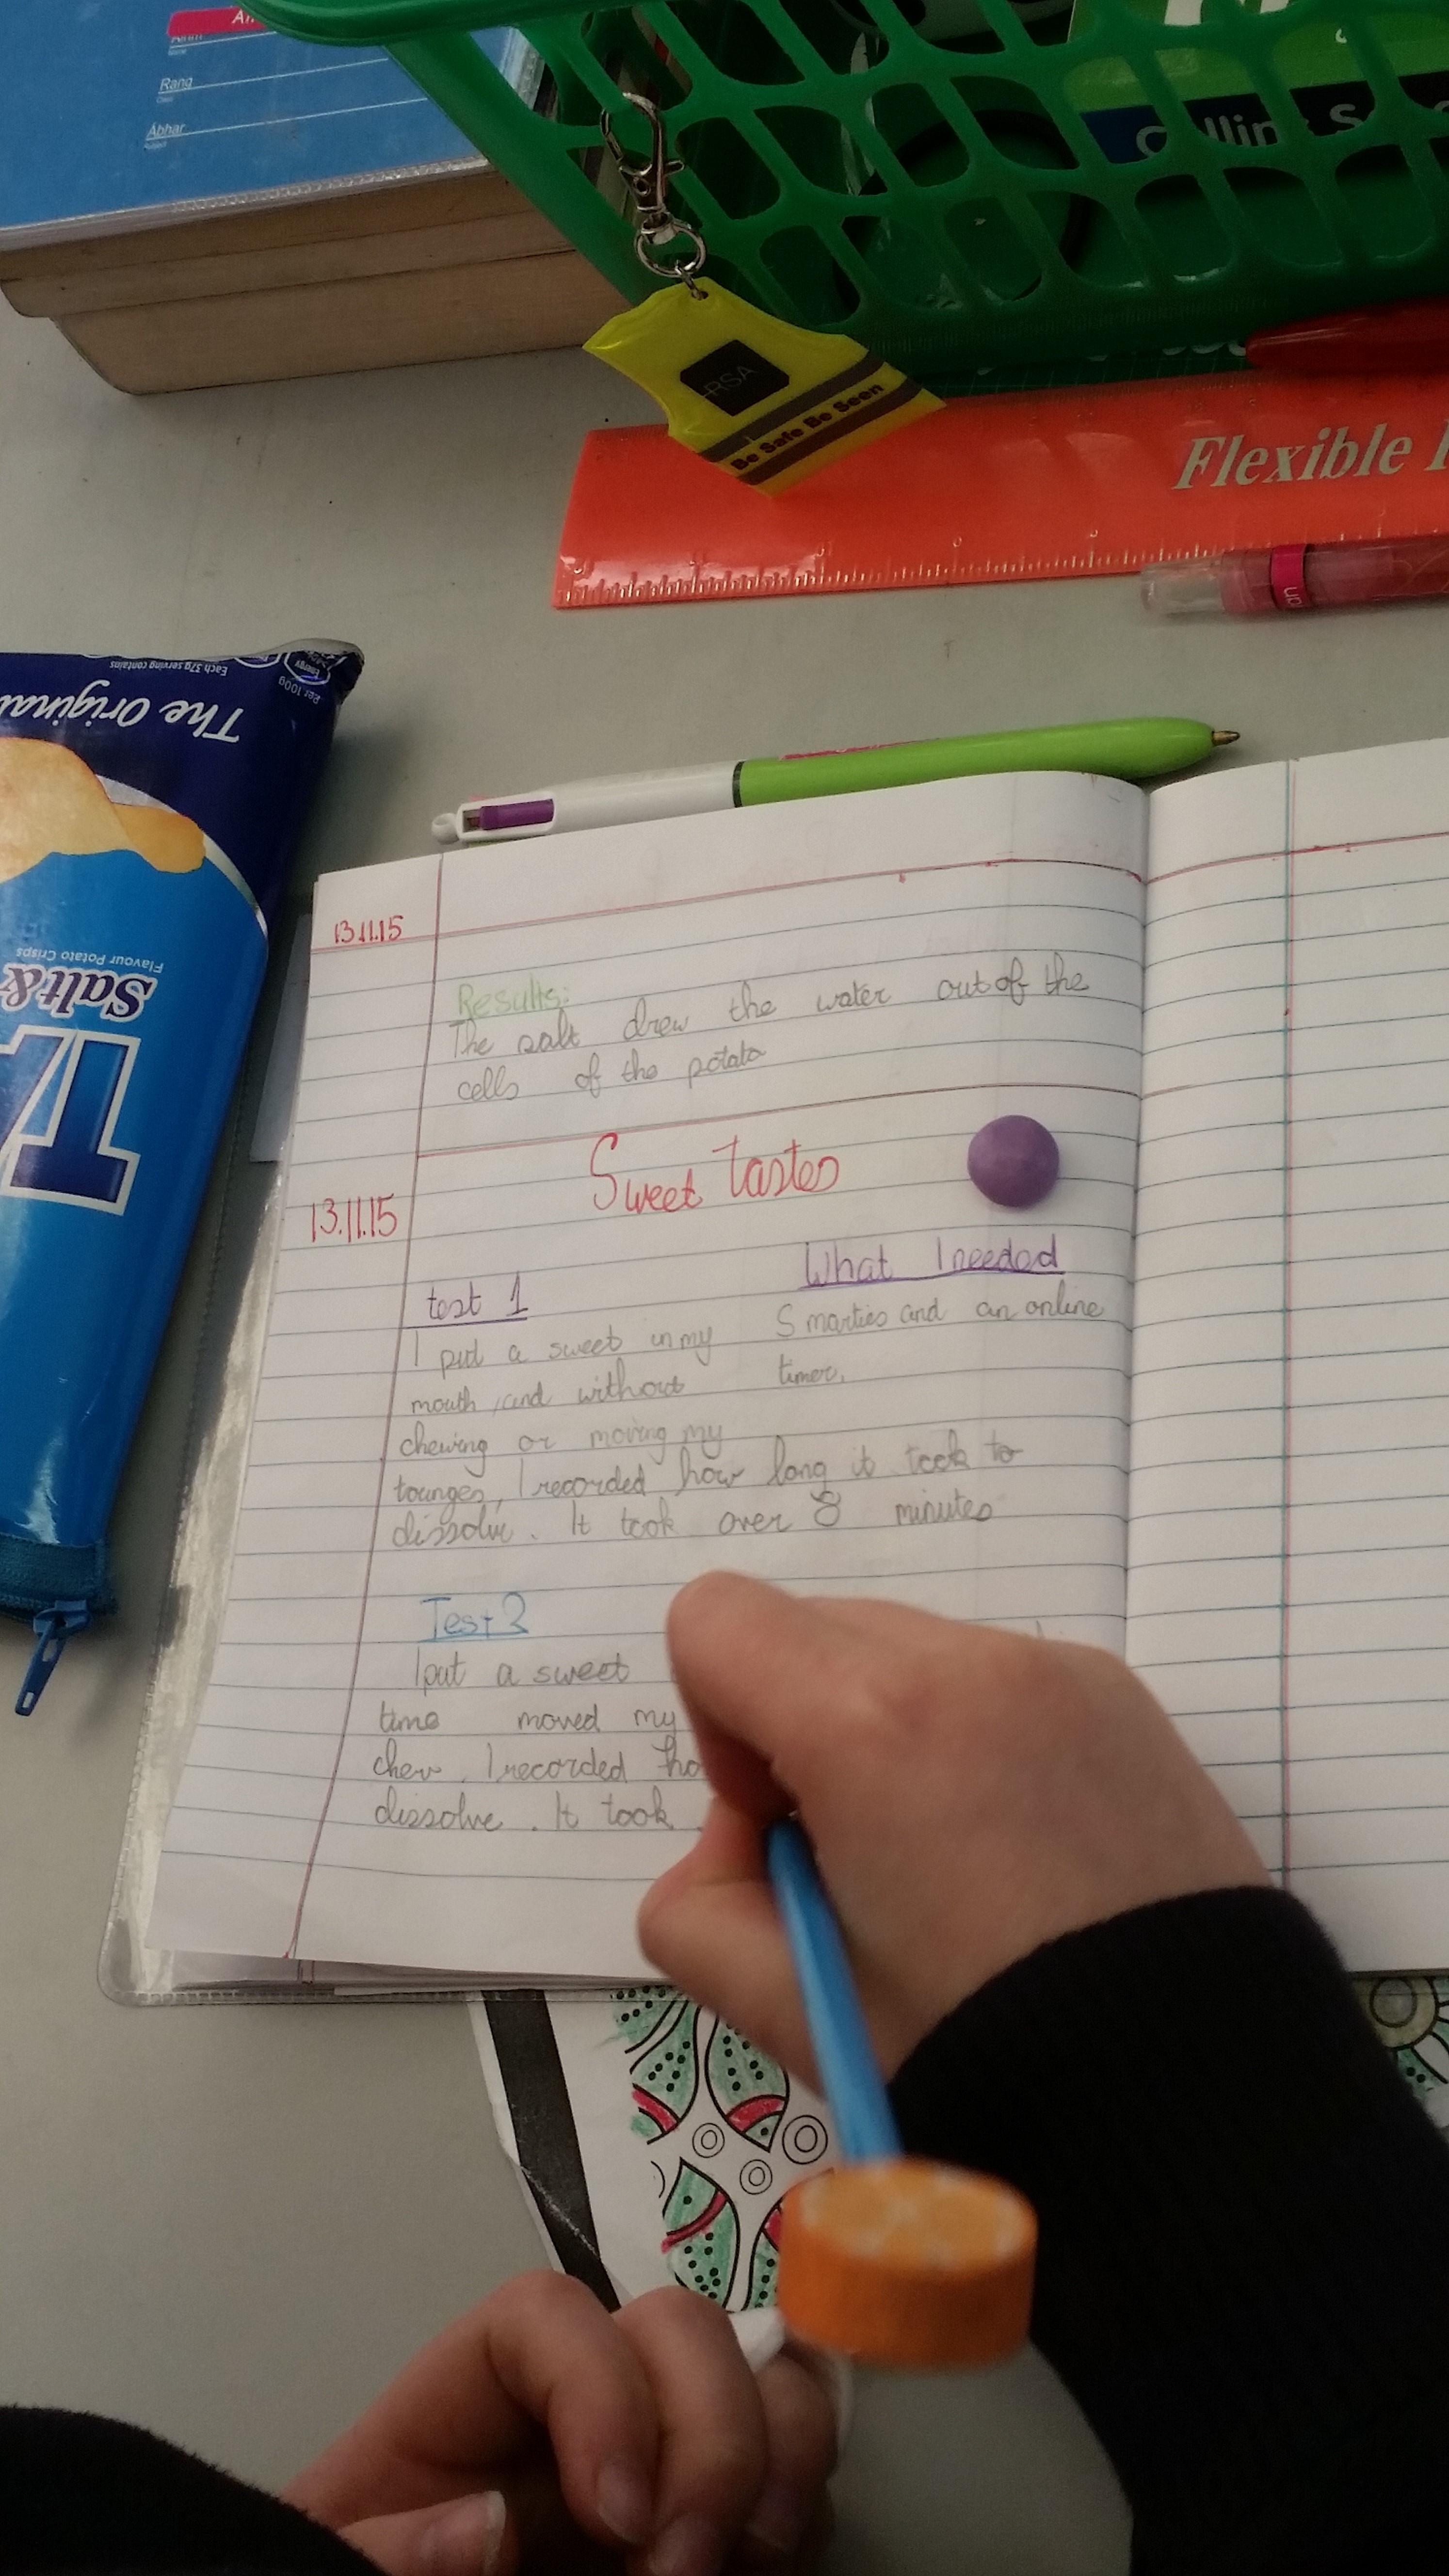 Ainm
Rang
Ábhar
Collins
RSA
Be Safe Be Seen
Flexible
Each 37g serving contains
Energy
Per 100g
The Original
Flavour Potato Crisps
Salt &
13.11.15
Results:
The salt drew the water out of the
cells of the potato
Sweet Tastes
13.11.15
What I needed
Smarties and an online
timer.
test 1
I put a sweet in my
mouth, and without
chewing or moving my
tounges, I recorded how long it took to
dissolve. It took over 8 minutes
Test 2
I put a sweet
time moved my
chew. I recorded ho
dissolve. It took